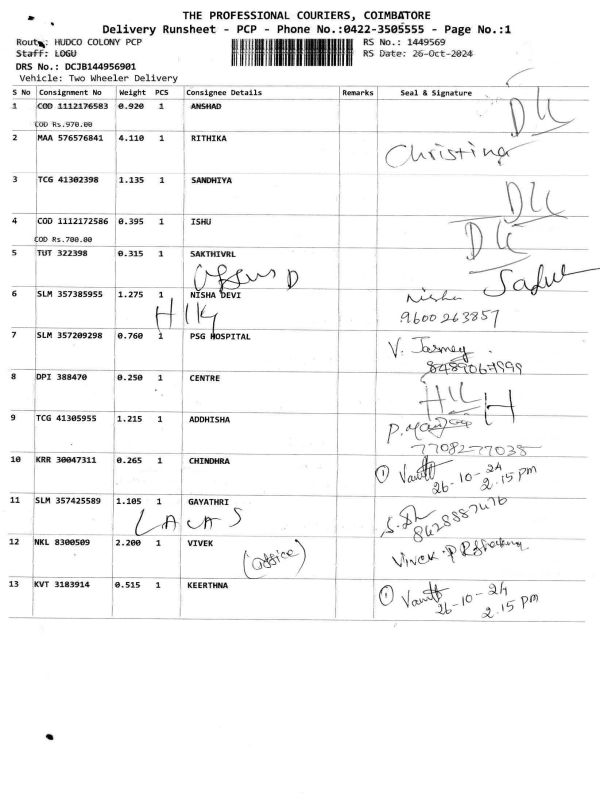 THE PROFESSIONAL COURIERS, COIMBATORE
Delivery Runsheet - PCP - Phone No.:0422-3505555 - Page No.:1
Route: HUDCO COLONY PCP RS No.: 1449569
Staff: LOGU RS Date: 26-Oct-2024
DRS No.: DCJB144956901
Vehicle: Two Wheeler Delivery
S No Consignment No Weight PCS Consignee Details Remarks Seal & Signature
1 COD 1112176583 0.920 1 ANSHAD
COD Rs.970.00
2 MAA 576576841 4.110 1 RITHIKA Christina
3 TCG 41302398 1.135 1 SANDHIYA
4 COD 1112172586 0.395 1 ISHU
COD Rs.700.00
5 TUT 322398 0.315 1 SAKTHIVRL
6 SLM 357385955 1.275 1 NISHA DEVI Nisha
9600263857
7 SLM 357209298 0.760 1 PSG HOSPITAL
8 DPI 388470 0.250 1 CENTRE
9 TCG 41305955 1.215 1 ADDHISHA
77082-77038
10 KRR 30047311 0.265 1 CHINDHRA 1
26-10-24
2.15 pm
11 SLM 357425589 1.105 1 GAYATHRI
12 NKL 8300509 2.200 1 VIVEK (office) Vivek
13 KVT 3183914 0.515 1 KEERTHNA 1
26-10-24
2.15 pm